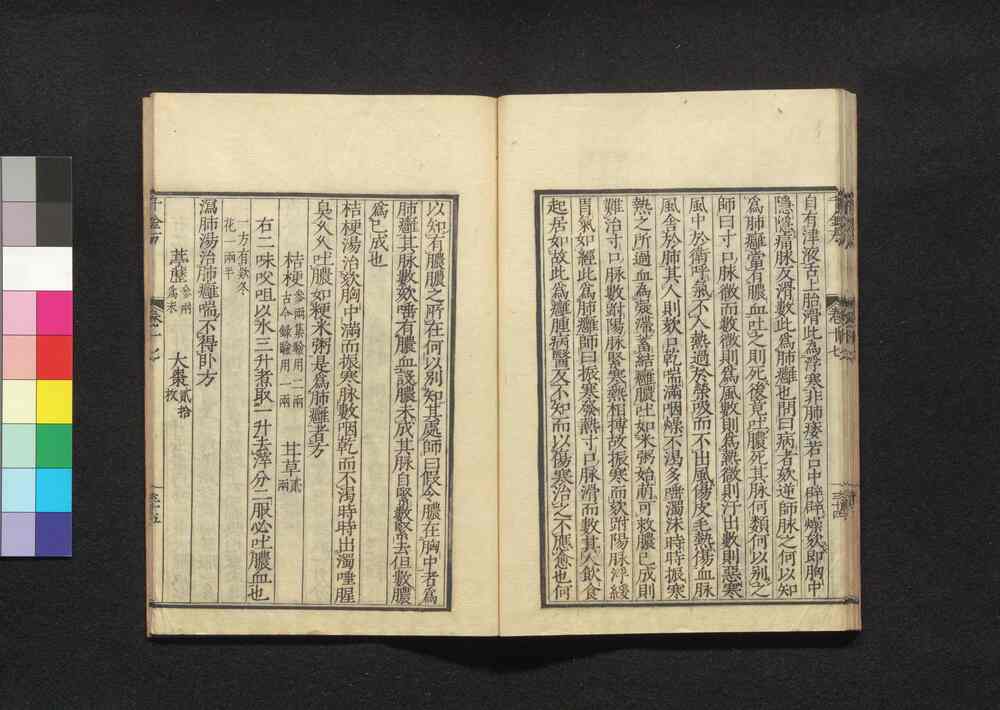 自有津液舌上胎滑此為浮寒非肺痿若口中辟辟燥欬即胸中
隱隱痛脉反滑數此為肺癰也問曰病者欬逆師脉之何以知
為肺癰當有膿血吐之則死後竟吐膿死其脉何類何以別之
師曰寸口脉微而數微則為風數則為熱微則汗出數則惡寒
風中於衛呼氣不入熱過於榮吸而不出風傷皮毛熱傷血脉
風舍於肺其人則欬口乾喘滿咽燥不渴多唾濁沫時時振寒
熱之所過血為凝滯蓄結癰膿吐如米粥始萌可救膿已成則
難治寸口脉數趺陽脉緊寒熱相搏故振寒而欬趺陽脉浮緩
胃氣如經此為肺癰師曰振寒發熱寸口脉滑而數其人飲食
起居如故此為癰腫病醫反不知而以傷寒治之不應愈也何
卷十七
三十四
以知有膿膿之所在何以別知其處師曰假令膿在胸中者為
肺癰其脉數欬唾有膿血設膿未成其脉自緊數緊去但數膿
為已成也
桔梗湯治欬胸中滿而振寒脉數咽乾而不渴時時出濁唾腥
臭久久吐膿如粳米粥是為肺癰者方
桔梗參兩集驗用二兩古今錄驗用一兩 甘草貳兩
右二味㕮咀以水三升煮取一升去滓分二服必吐膿血也
一方有欵冬花一兩半
瀉肺湯治肺癰喘不得卧方
葶藶參兩為末 大棗貳拾枚
三十五